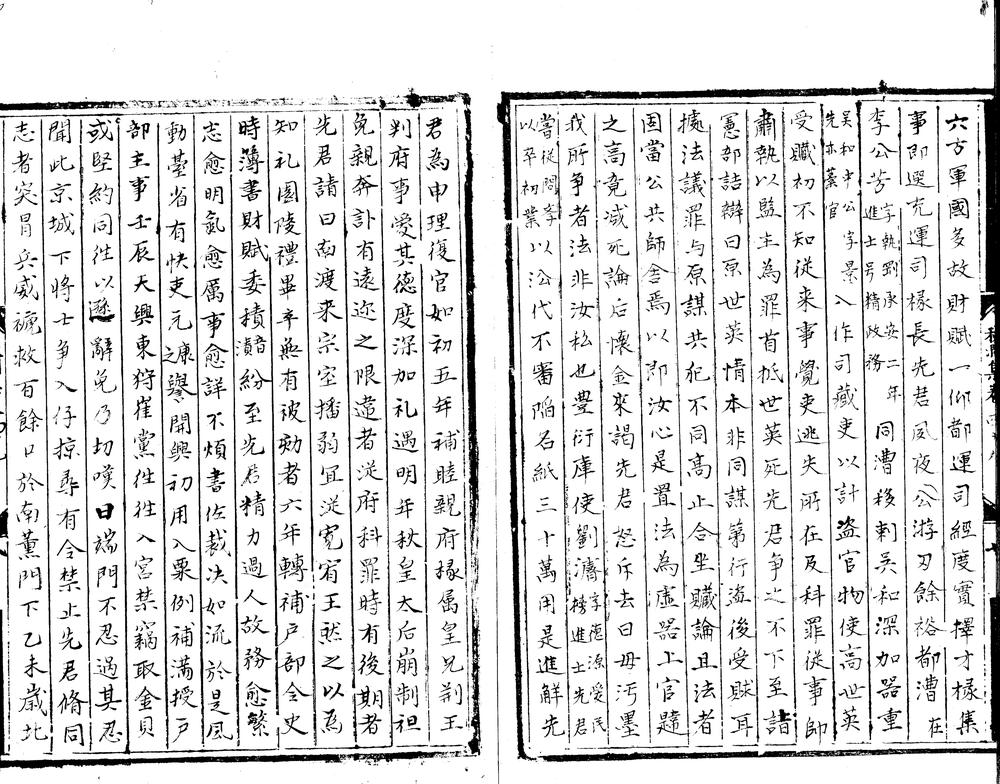 六方軍國多故財賦一仰都運司經度實擇才掾集
事即選充運司掾長先君夙夜公游刃餘裕都漕在
李公芳字執剛承安二年進士号精敗務同漕移剌吳和深加器重
吳和中公字景先亦蓂官入作司藏吏以計盗官物使高世英
受贓初不知從来事覺吏逃失所在及科罪從事帥
肅執以監主為罪首抵世英死先君争之不下至諸
憲部詰辯曰原世英情本非同謀第行盗後受賕耳
據法議罪与原謀共犯不同髙止合坐贓論且法者
国當公共師舍焉以即汝心是置法為虚器上官韙
之高竟減死論后懐金來謁先君怒斥去曰毋污墨
我所争者法非汝私也豊衍庫使劉濤字徳源愛民榜進士先君
嘗從問孝以卒初業以公代不審陷名紙三十萬用是進解先
君為申理復官如初五年補睦親府掾属皇兄荆王
判府事愛其徳度深加礼遇明年秋皇太后崩制袒
免親奔訃有遠迩之限違者從府科罪時有後期者
先君請曰南渡来宗室播弱宜從寛宥王然之以為
知礼園陵禮畢卒無有被劾者六年轉補户部令史
時簿書財賦委積瀆紛至先君精力過人故務愈繁
志愈明氣愈厲事愈詳不煩書佐裁决如流於是風
動臺省有快吏元康之譽開興初用入粟例補滿授户
部主事壬辰天興東狩崔黨徃徃入宫禁竊取金貝
或堅約同徃以遜辭免乃切嘆曰端門不忍過其忍
聞此京城下將士争入俘掠尋有令禁止先君脩同
志者突冒兵威褫救百餘口於南薫門下乙未歲北